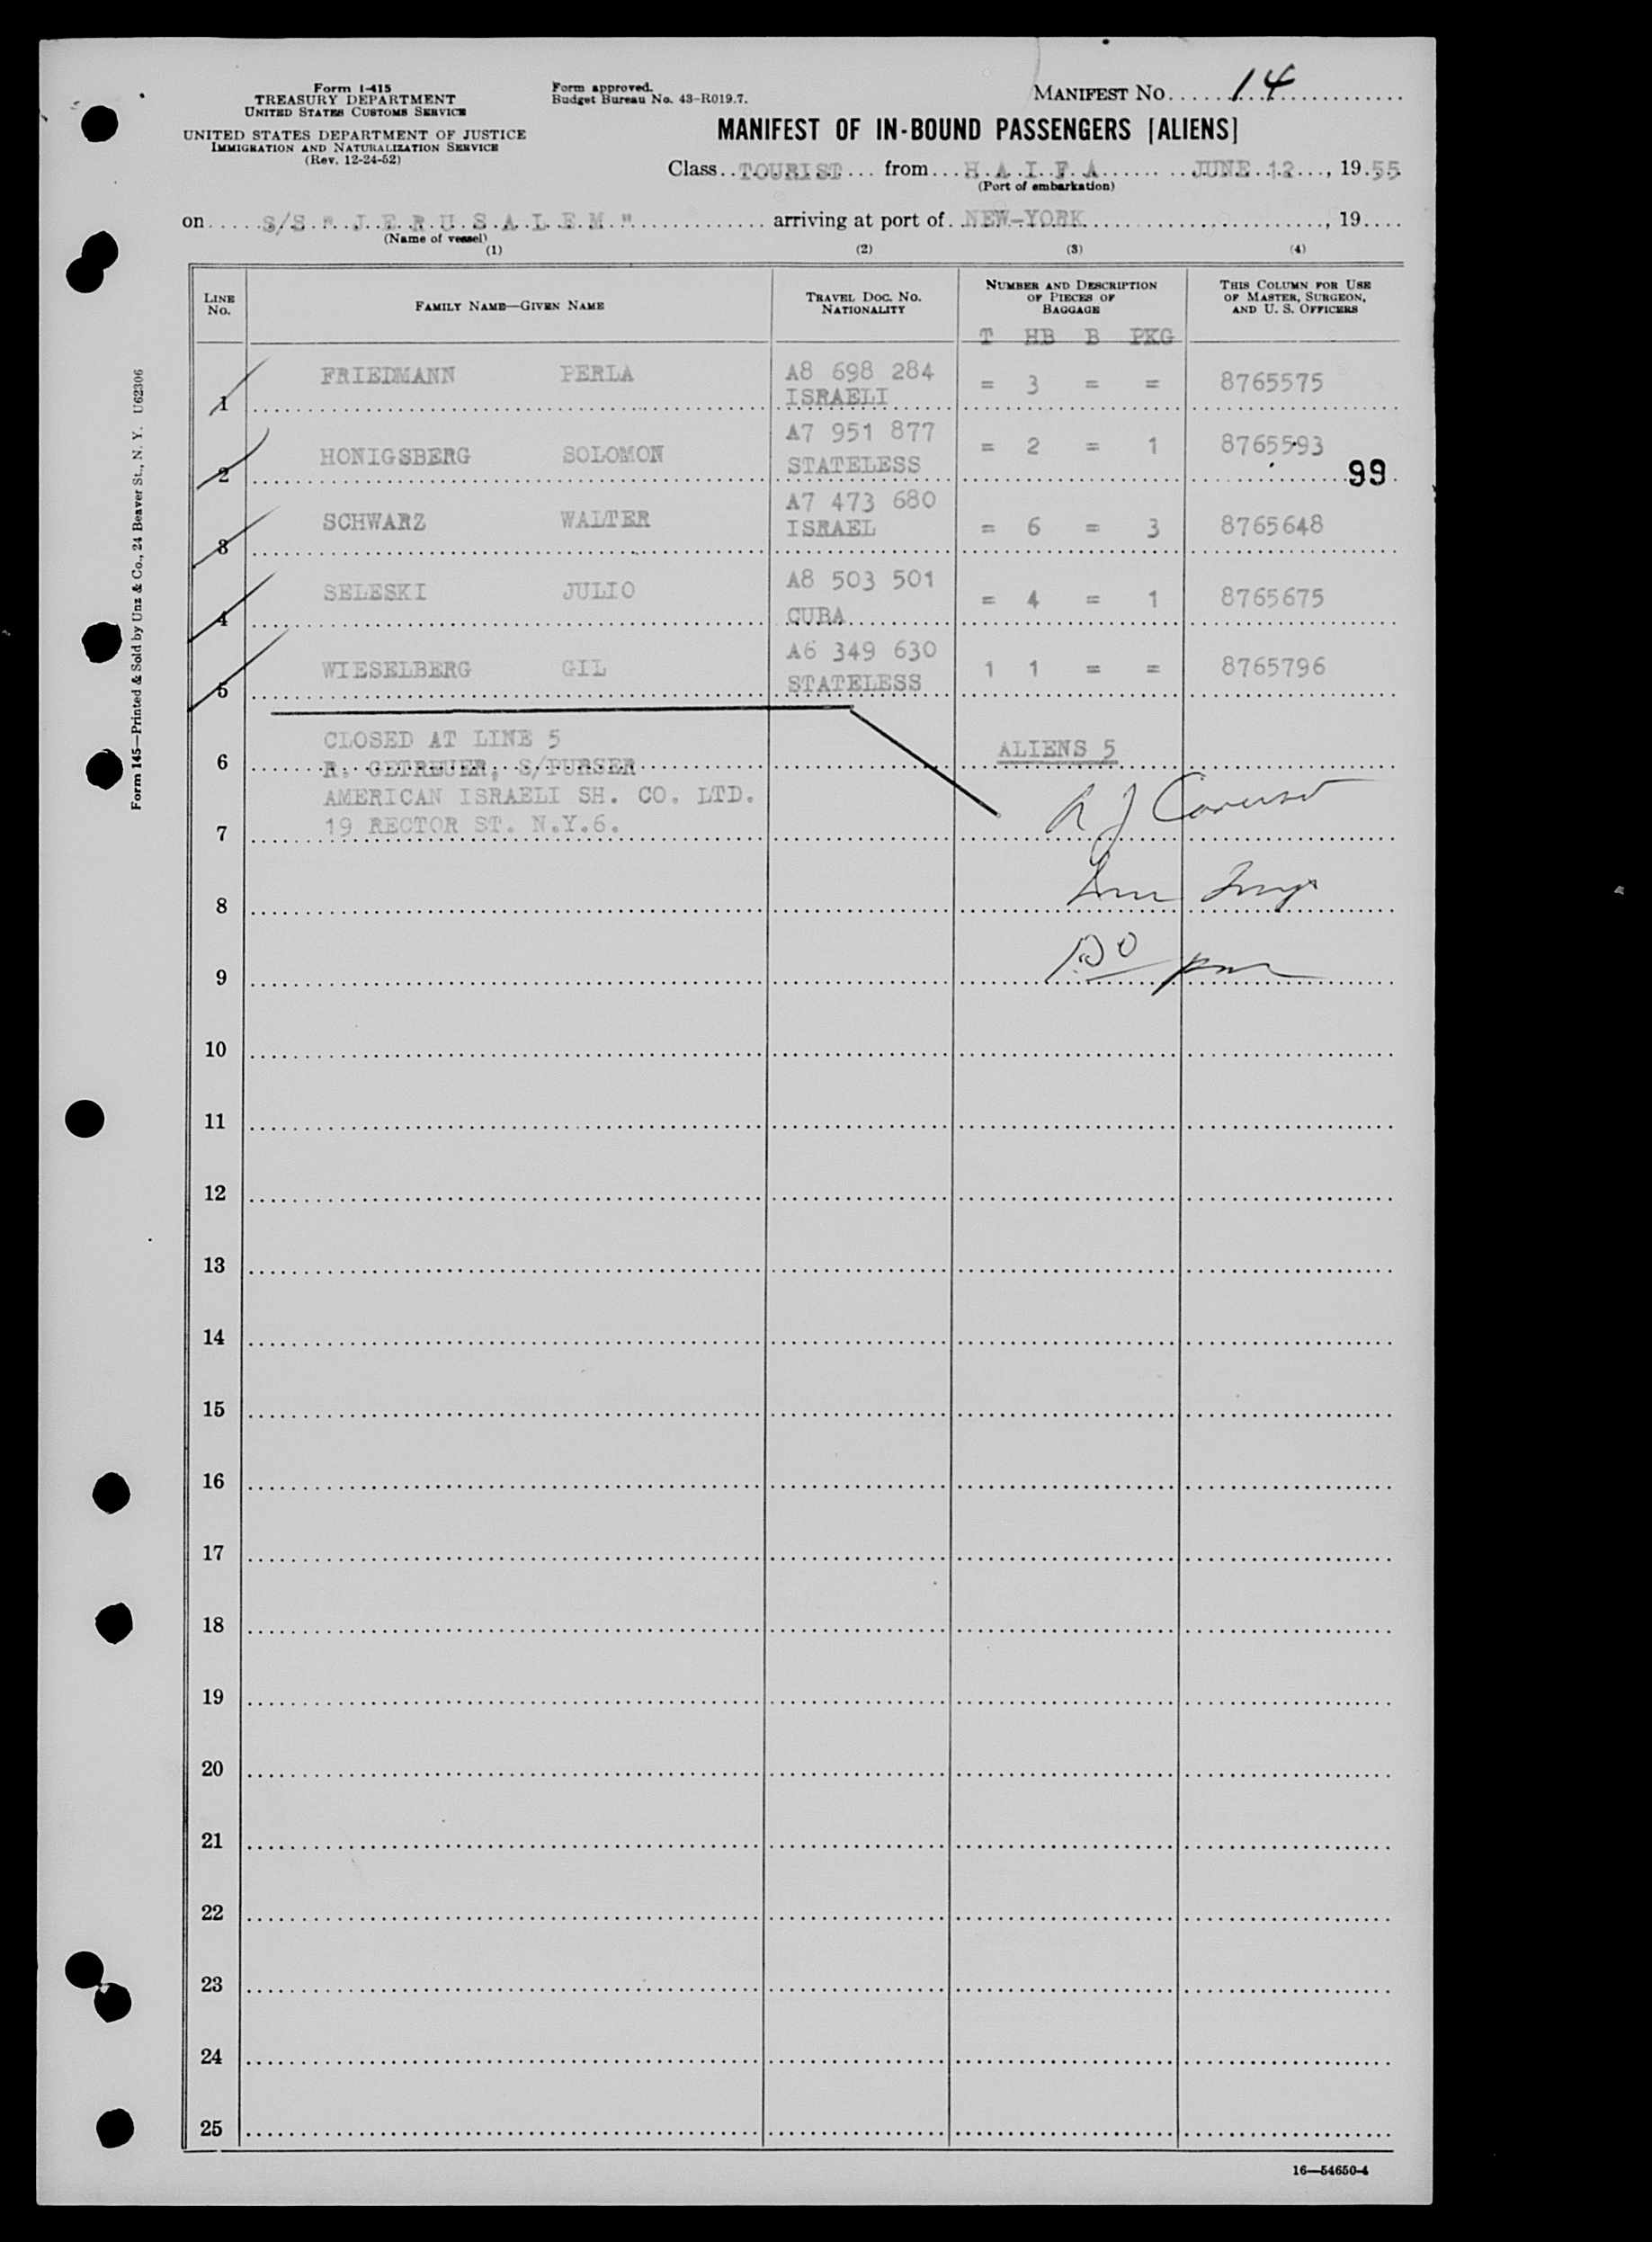 Form I-415
TREASURY DEPARTMENT
UNITED STATES CUSTOMS SERVICE
UNITED STATES DEPARTMENT OF JUSTICE
IMMIGRATION AND NATURALIZATION SERVICE
(Rev. 12-24-52)
Form approved.
Budget Bureau No. 43-R019.7.
MANIFEST NO. 14
MANIFEST OF IN-BOUND PASSENGERS [ALIENS]
Class TOURIST from H A I F A JUNE 12, 1955
(Port of embarkation)
on S/S " J E R U S A L E M " arriving at port of NEW-YORK, 19
(Name of vessel)
(1) (2) (3) (4)
LINE NO. FAMILY NAME—GIVEN NAME TRAVEL DOC. NO. NATIONALITY NUMBER AND DESCRIPTION OF PIECES OF BAGGAGE THIS COLUMN FOR USE OF MASTER, SURGEON, AND U. S. OFFICERS
T HB B PKG
1 FRIEDMANN PERLA A8 698 284 ISRAELI = 3 = = 8765575
2 HONIGSBERG SOLOMON A7 951 877 STATELESS = 2 = 1 8765593
99
3 SCHWARZ WALTER A7 473 680 ISRAEL = 6 = 3 8765648
4 SELESKI JULIO A8 503 501 CUBA = 4 = 1 8765675
5 WIESELBERG GIL A6 349 630 STATELESS 1 1 = = 8765796
CLOSED AT LINE 5
6 R. GETREUER, S/PURSER ALIENS 5
AMERICAN ISRAELI SH. CO. LTD.
7 19 RECTOR ST. N.Y.6.
8
9
10
11
12
13
14
15
16
17
18
19
20
21
22
23
24
25
16—54650-4
Form 145—Printed & Sold by Unz & Co., 24 Beaver St., N. Y. U62306